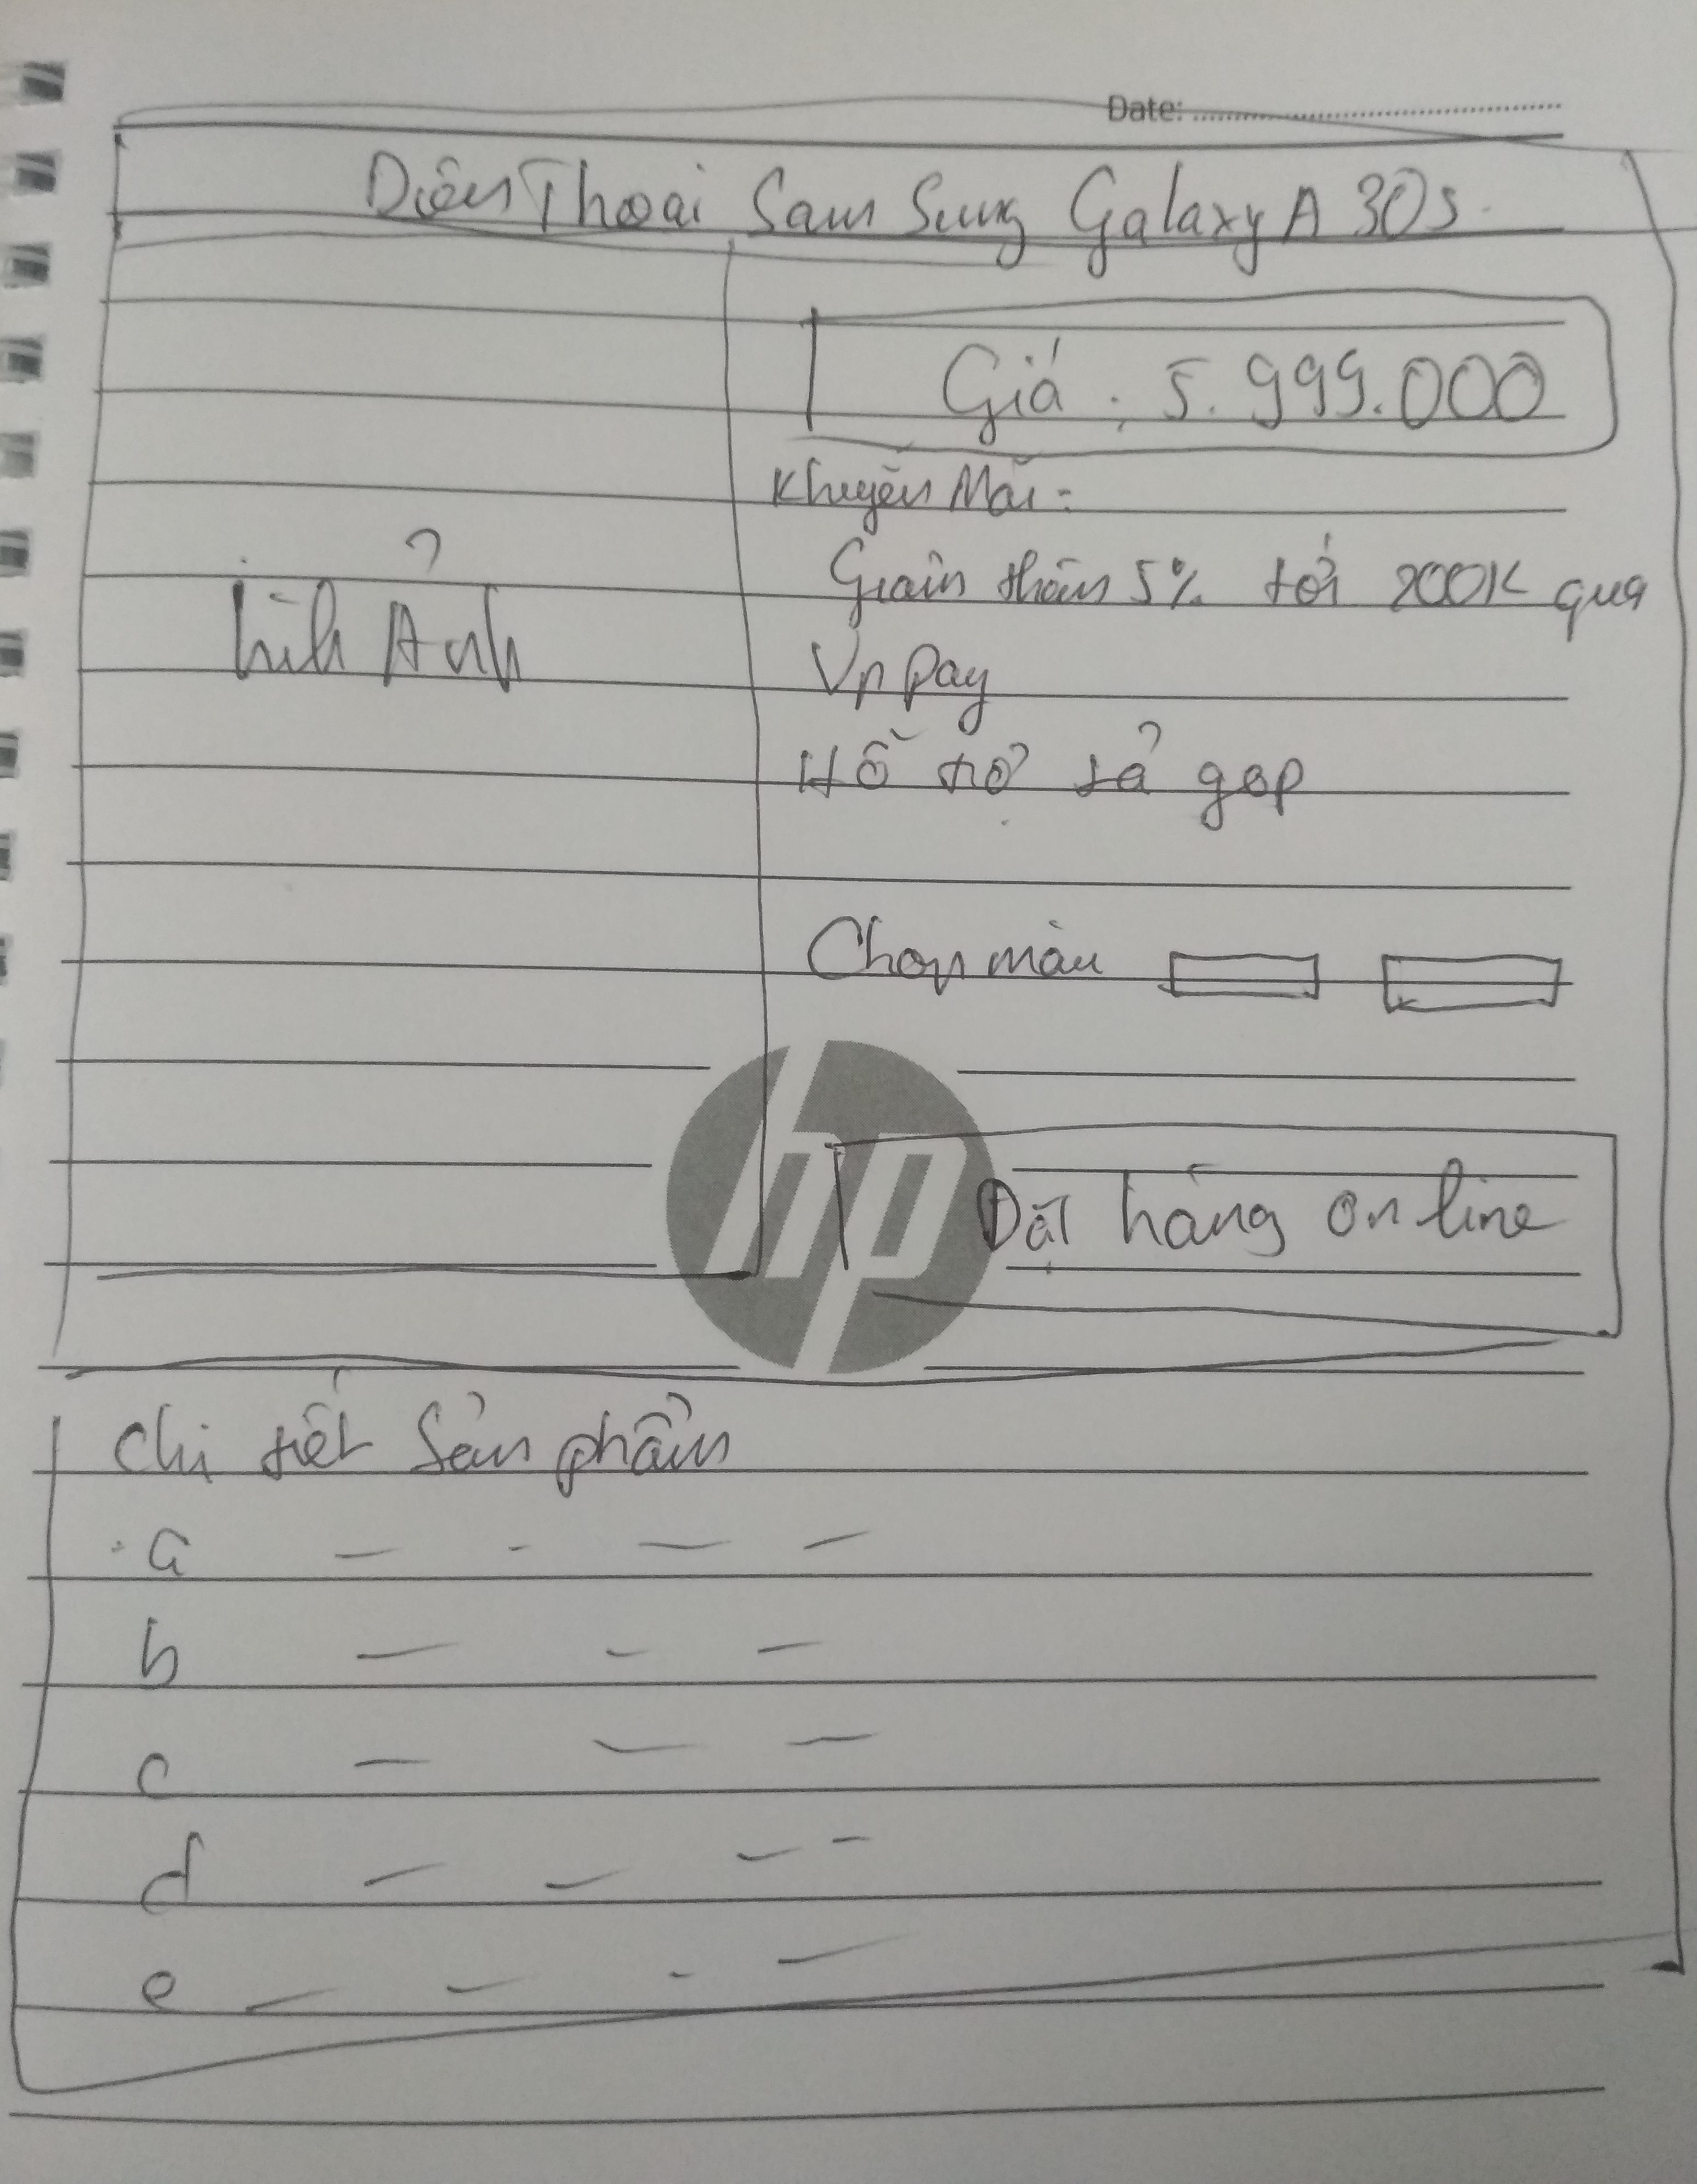 Date:
Điện Thoại Sam Sung Galaxy A 30s
Giá : 5.999.000
Khuyến Mãi:
Giảm thêm 5% tới 200K qua
Vn Pay
Hỗ trợ trả góp
hình Ảnh
Chọn màu
hp
Đặt hàng on line
Chi tiết Sản phẩm
a
b
c
d
e